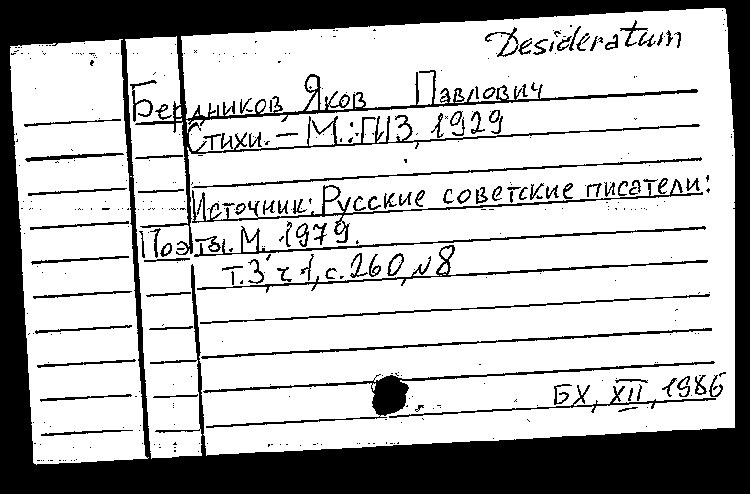 Desideratum
Бердников, Яков Павлович
Стихи. – М.: ГИЗ, 1929
Источник: Русские советские писатели:
Поэты. М., 1979.
т.3, ч.1, с.260, №8
БХ, XII, 1986